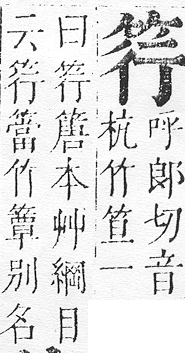 筕
呼郎切音
杭竹笪一
曰筕篖本艸綱目
云筕簹竹簟别名